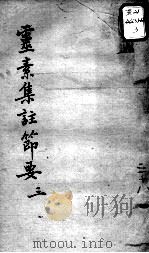 靈素集註節要 三
研狗
mtoou.info
mtoou.info